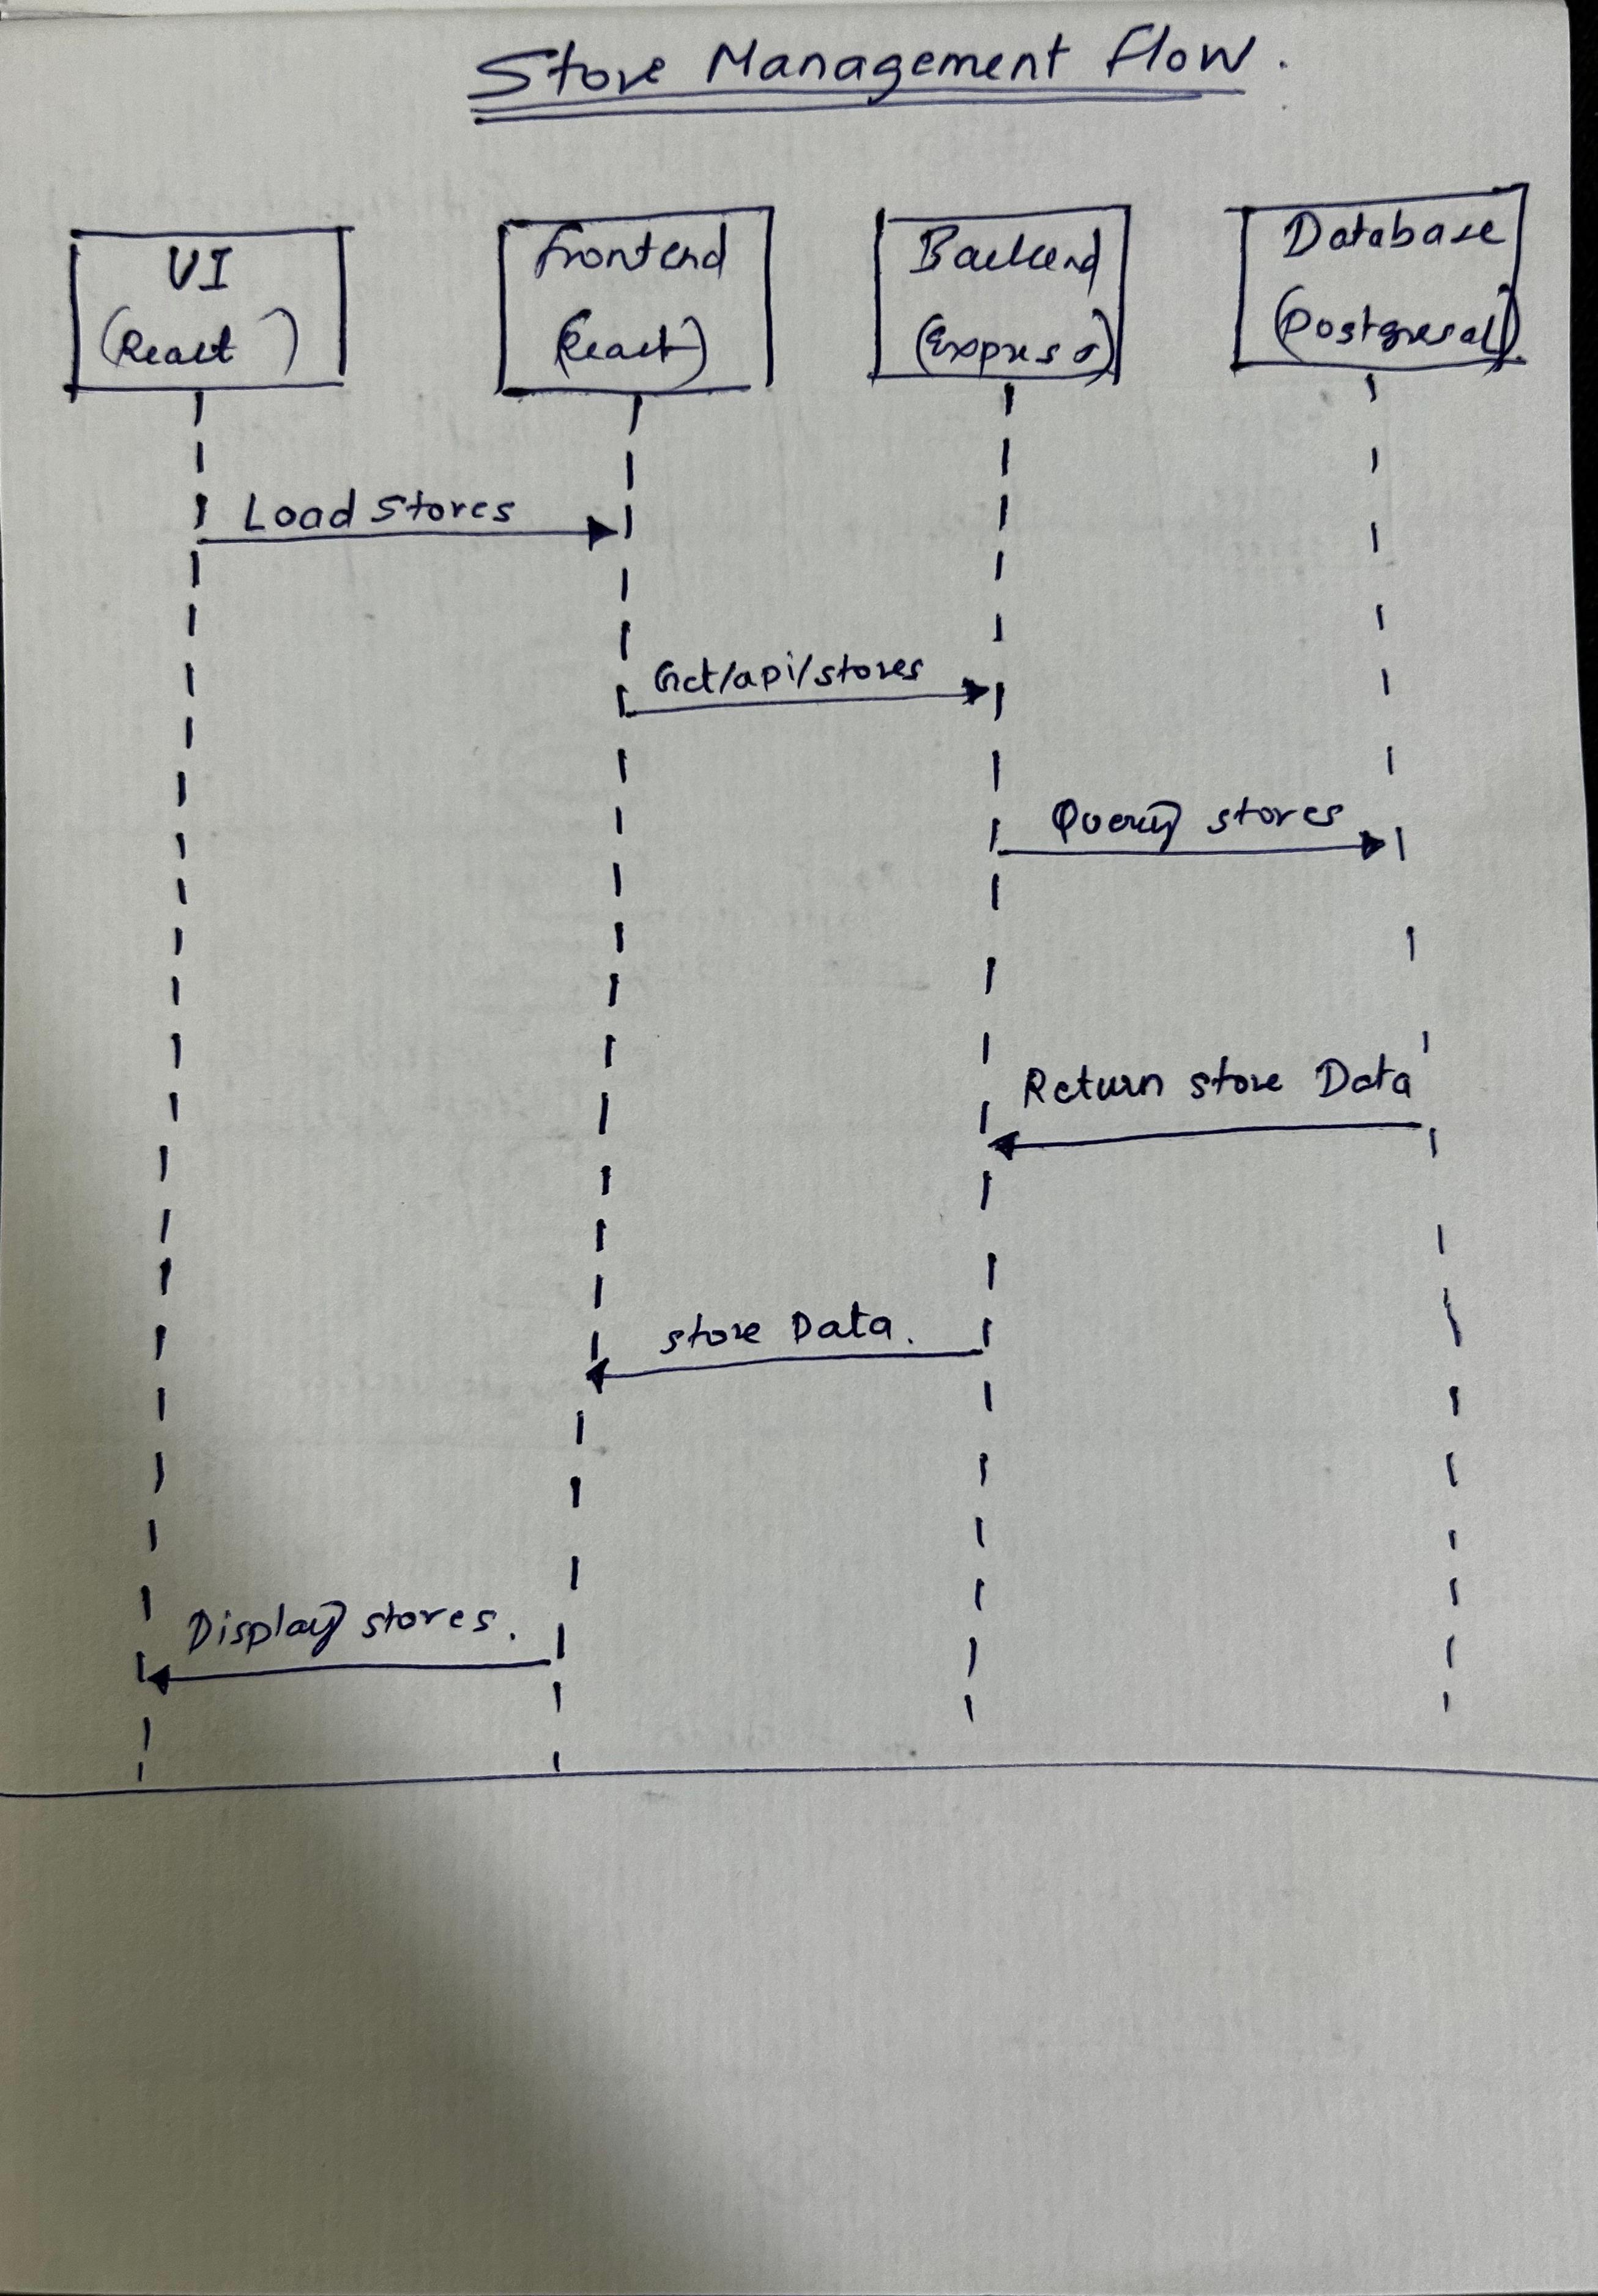 Store Management flow.
UI
(React)
frontend
(React)
Backend
(Express)
Database
(Postgresql)
Load Stores
Get/api/stores
Query stores
Return store Data
store Data.
Display stores.